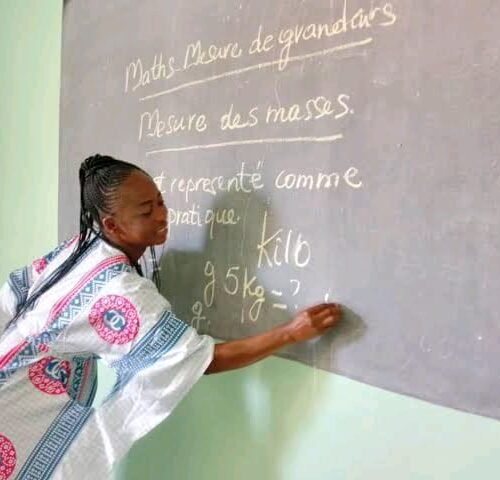 Maths Mesure de grandeurs
Mesure des masses.
t representé comme
pratique
Kilo
g 5kg = ?
g.